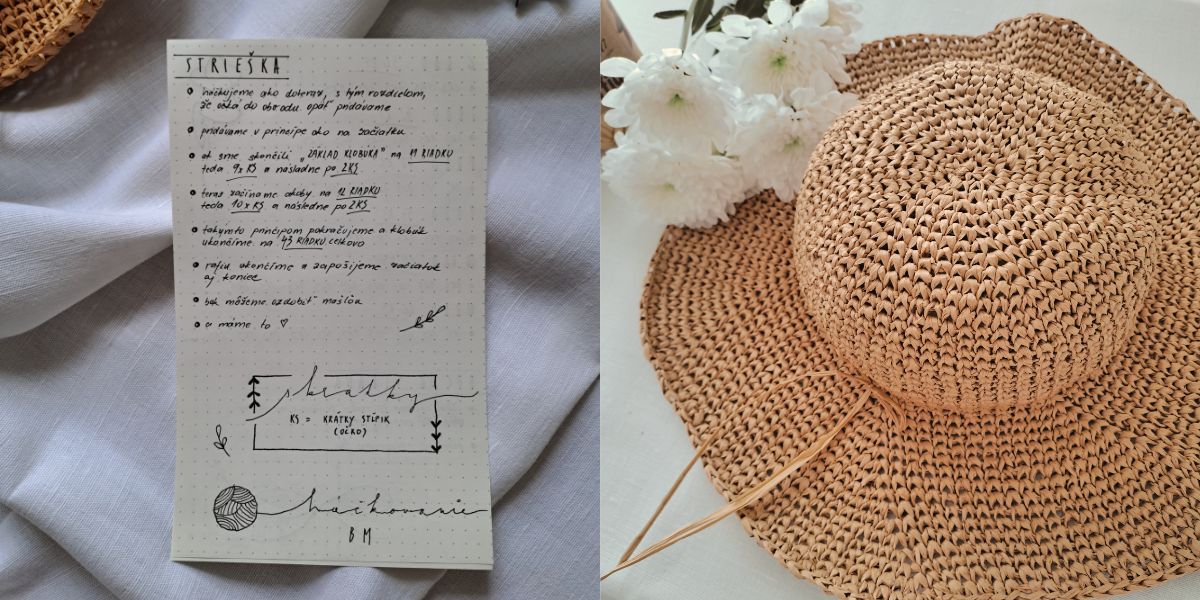 STRIEŠKA
háčkujeme ako doteraz, s tým rozdielom,
že očká do obvodu opäť pridávame
pridávame v princípe ako na začiatku
ak sme skončili „ZÁKLAD KLOBÚKA" na 11 RIADKU
teda 9x KS a následne po 2KS
teraz začíname akoby na 12 RIADKU
teda 10x KS a následne po 2KS
takýmto princípom pokračujeme a klobúk
ukončíme na 43 RIADKU celkovo
rafiu ukončíme a zapošijeme začiatok
aj koniec
bok môžeme ozdobiť mašľou
a máme to ♡
skratky
KS = KRÁTKY STĹPIK
(OČKO)
háčkovanie
BM